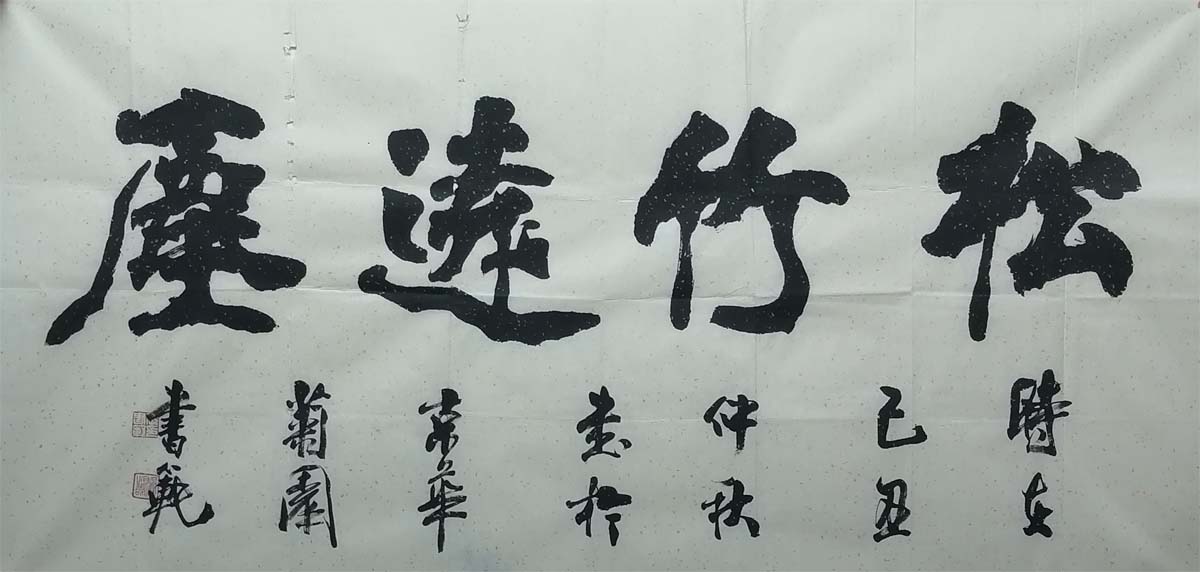 松竹遴塵
時在
己丑
仲秋
書於
京華
菊園
書範